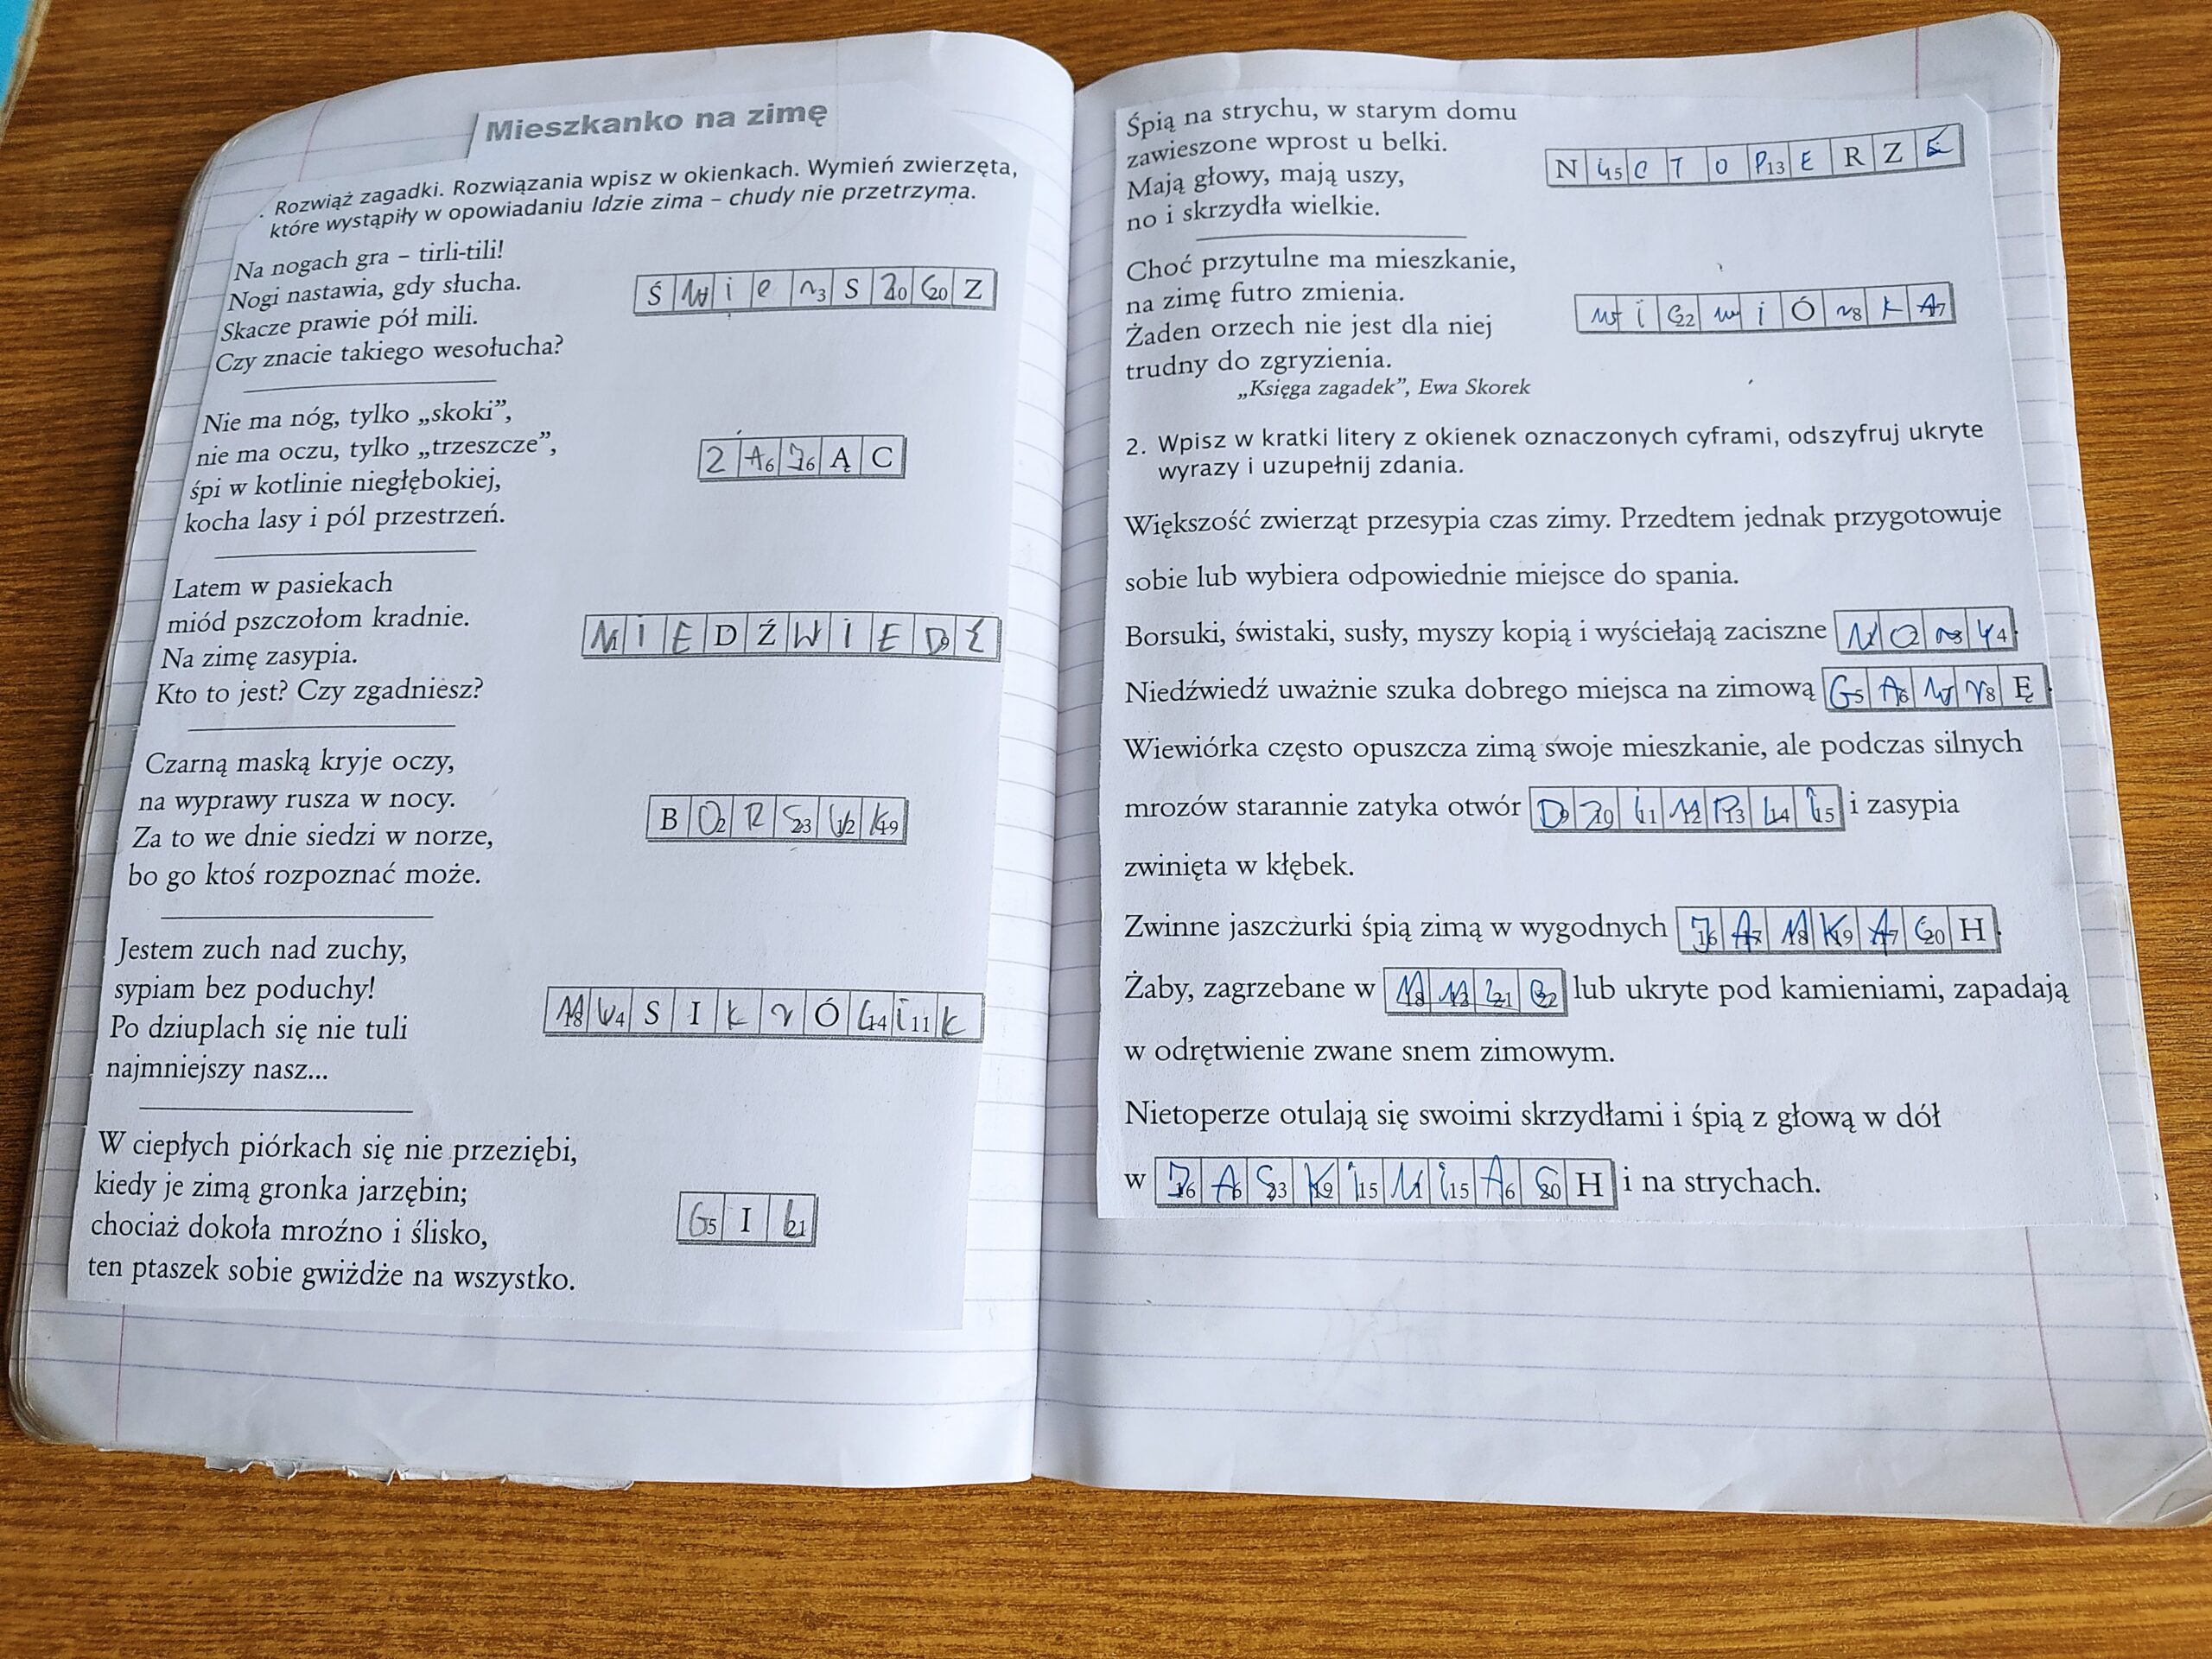 Mieszkanko na zimę
. Rozwiąż zagadki. Rozwiązania wpisz w okienkach. Wymień zwierzęta,
które wystąpiły w opowiadaniu Idzie zima – chudy nie przetrzyma.
Na nogach gra – tirli-tili!
Nogi nastawia, gdy słucha.
Skacze prawie pół mili.
Czy znacie takiego wesołucha?
Ś W i e r3 S Z10 C20 Z
Nie ma nóg, tylko „skoki”,
nie ma oczu, tylko „trzeszcze”,
śpi w kotlinie niegłębokiej,
kocha lasy i pól przestrzeń.
Z A6 J16 Ą C
Latem w pasiekach
miód pszczołom kradnie.
Na zimę zasypia.
Kto to jest? Czy zgadniesz?
N1 I E D Ź W I E D9 Ź
Czarną maską kryje oczy,
na wyprawy rusza w nocy.
Za to we dnie siedzi w norze,
bo go ktoś rozpoznać może.
B O2 R S23 U12 K19
Jestem zuch nad zuchy,
sypiam bez poduchy!
Po dziuplach się nie tuli
najmniejszy nasz...
M18 Y4 S I k r Ó L14 i11 k
W ciepłych piórkach się nie przeziębi,
kiedy je zimą gronka jarzębin;
chociaż dokoła mroźno i ślisko,
ten ptaszek sobie gwiżdże na wszystko.
G5 I L21
Śpią na strychu, w starym domu
zawieszone wprost u belki.
Mają głowy, mają uszy,
no i skrzydła wielkie.
N i15 e T O P13 E R Z E
Choć przytulne ma mieszkanie,
na zimę futro zmienia.
Żaden orzech nie jest dla niej
trudny do zgryzienia.
w7 i e22 w i Ó r8 k A17
„Księga zagadek”, Ewa Skorek
2. Wpisz w kratki litery z okienek oznaczonych cyframi, odszyfruj ukryte
wyrazy i uzupełnij zdania.
Większość zwierząt przesypia czas zimy. Przedtem jednak przygotowuje
sobie lub wybiera odpowiednie miejsce do spania.
Borsuki, świstaki, susły, myszy kopią i wyściełają zaciszne N1 O2 r3 Y4.
Niedźwiedź uważnie szuka dobrego miejsca na zimową G5 A6 W7 r8 Ę.
Wiewiórka często opuszcza zimą swoje mieszkanie, ale podczas silnych
mrozów starannie zatyka otwór D9 Z10 i11 U12 P13 L14 i15 i zasypia
zwinięta w kłębek.
Zwinne jaszczurki śpią zimą w wygodnych J16 A17 M18 K19 A17 C20 H.
Żaby, zagrzebane w M18 U12 L21 e22 lub ukryte pod kamieniami, zapadają
w odrętwienie zwane snem zimowym.
Nietoperze otulają się swoimi skrzydłami i śpią z głową w dół
w J16 A6 S23 K19 i15 N1 i15 A6 C20 H i na strychach.